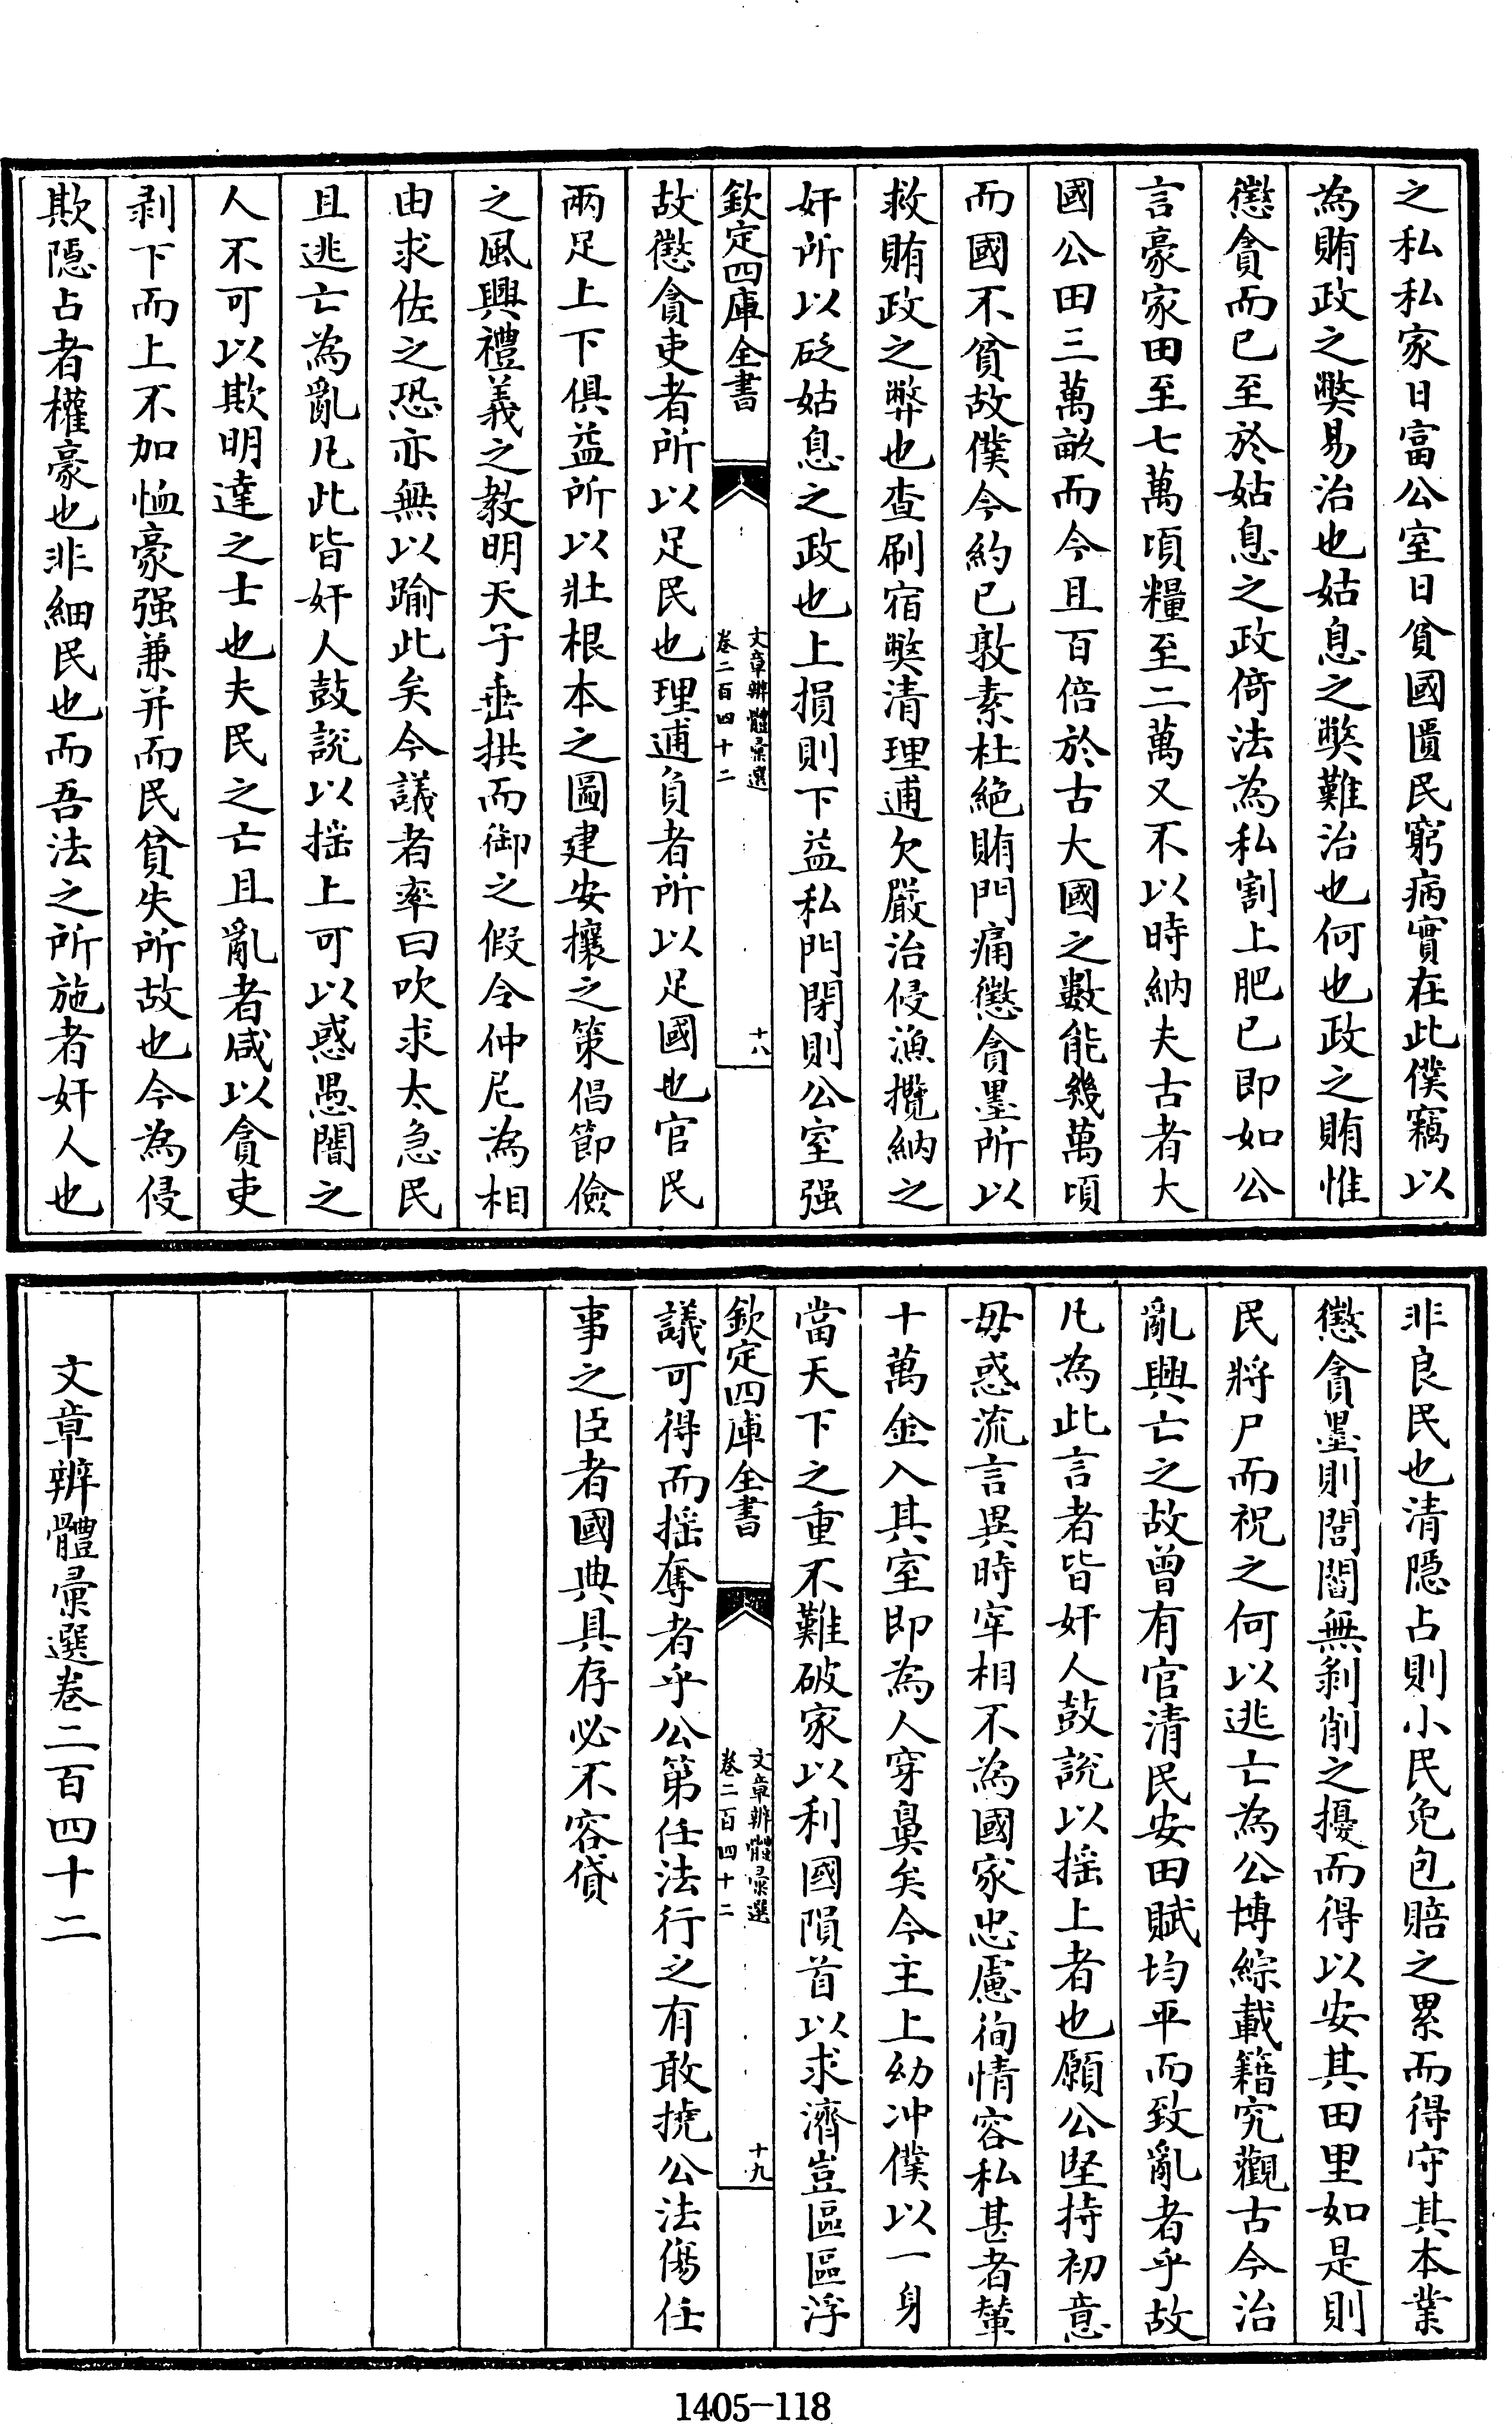 之私私家日富公室日貧國匱民窮病實在此僕竊以
為賄政之弊易治也姑息之弊難治也何也政之賄惟
懲貪而已至於姑息之政倚法為私割上肥已即如公
言豪家田至七萬頃糧至二萬又不以時納夫古者大
國公田三萬畝而今且百倍於古大國之數能幾萬頃
而國不貧故僕今約已敦素杜絶賄門痛懲貪墨所以
救賄政之弊也查刷宿弊清理逋欠嚴治侵漁攬納之
奸所以砭姑息之政也上損則下益私門閉則公室强
欽定四庫全書
文章辨體彙選
卷二百四十二
十八
故懲貪吏者所以足民也理逋負者所以足國也官民
兩足上下俱益所以壯根本之圖建安攘之策倡節儉
之風興禮義之教明天子垂拱而御之假令仲尼為相
由求佐之恐亦無以踰此矣今議者率曰吹求太急民
且逃亡為亂凡此皆奸人鼓說以揺上可以惑愚闇之
人不可以欺明達之士也夫民之亡且亂者咸以貪吏
剥下而上不加恤豪强兼并而民貧失所故也今為侵
欺隠占者權豪也非細民也而吾法之所施者奸人也
非良民也清隠占則小民免包賠之累而得守其本業
懲貪墨則閭閻無剥削之擾而得以安其田里如是則
民將尸而祝之何以逃亡為公博綜載籍究觀古今治
亂興亡之故曾有官清民安田賦均平而致亂者乎故
凡為此言者皆奸人鼓說以揺上者也願公堅持初意
毋惑流言異時宰相不為國家忠慮徇情容私甚者輦
十萬金入其室即為人穿鼻矣今主上幼冲僕以一身
當天下之重不難破家以利國隕首以求濟豈區區浮
欽定四庫全書
文章辨體彙選
卷二百四十二
十九
議可得而揺奪者乎公第任法行之有敢撓公法傷任
事之臣者國典具存必不容貸
文章辨體彙選卷二百四十二
1405-118